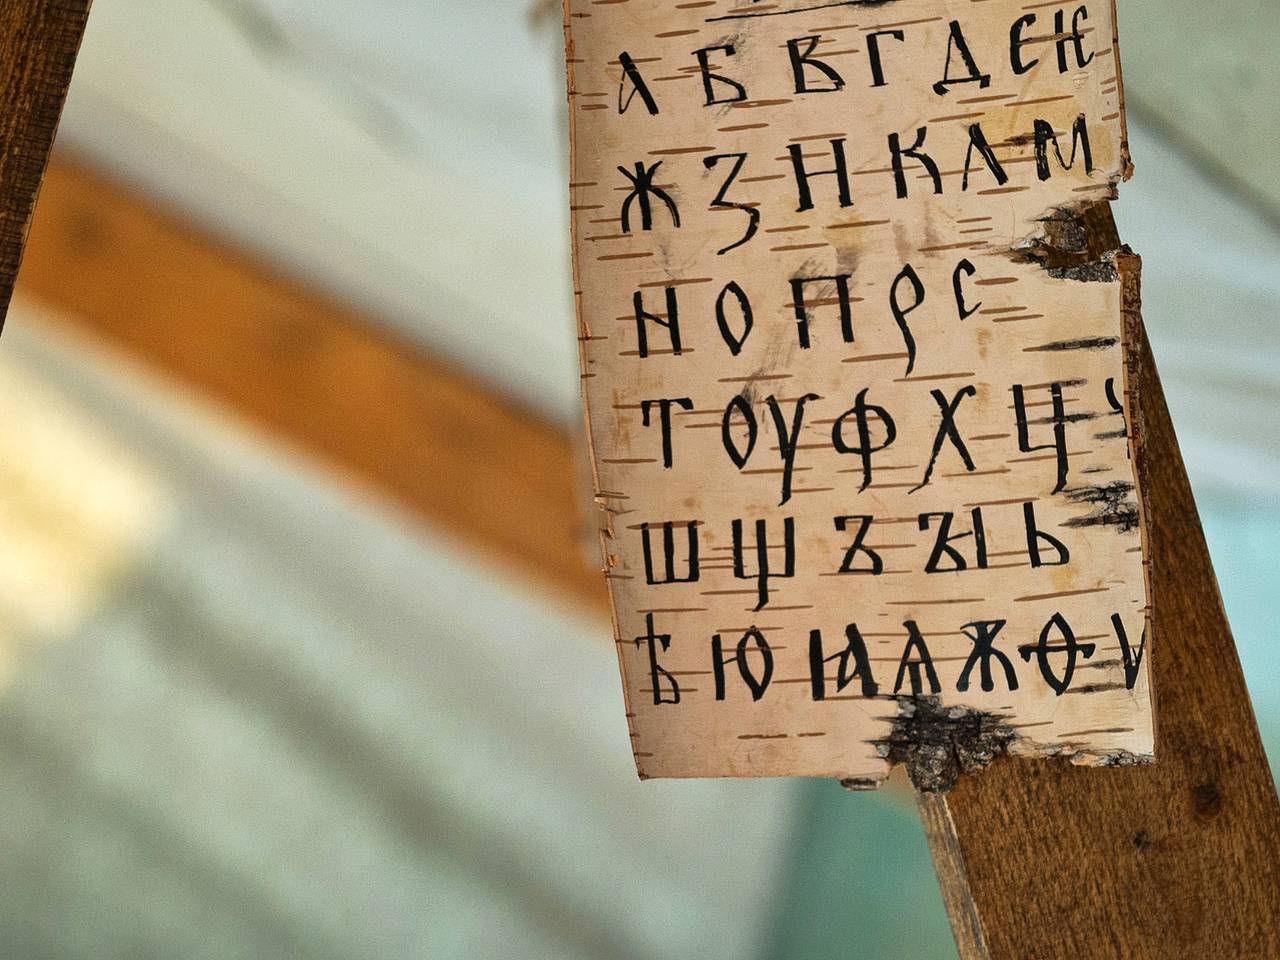 А Б В Г Д Є Ѥ
Ж З Н К Л М
Н О П Р С
Т ОУ Ф Х Ц Ч
Ш Щ Ъ ЪІ Ь
Ѣ Ю Ꙗ Ѧ Ѫ Ѳ Ѵ